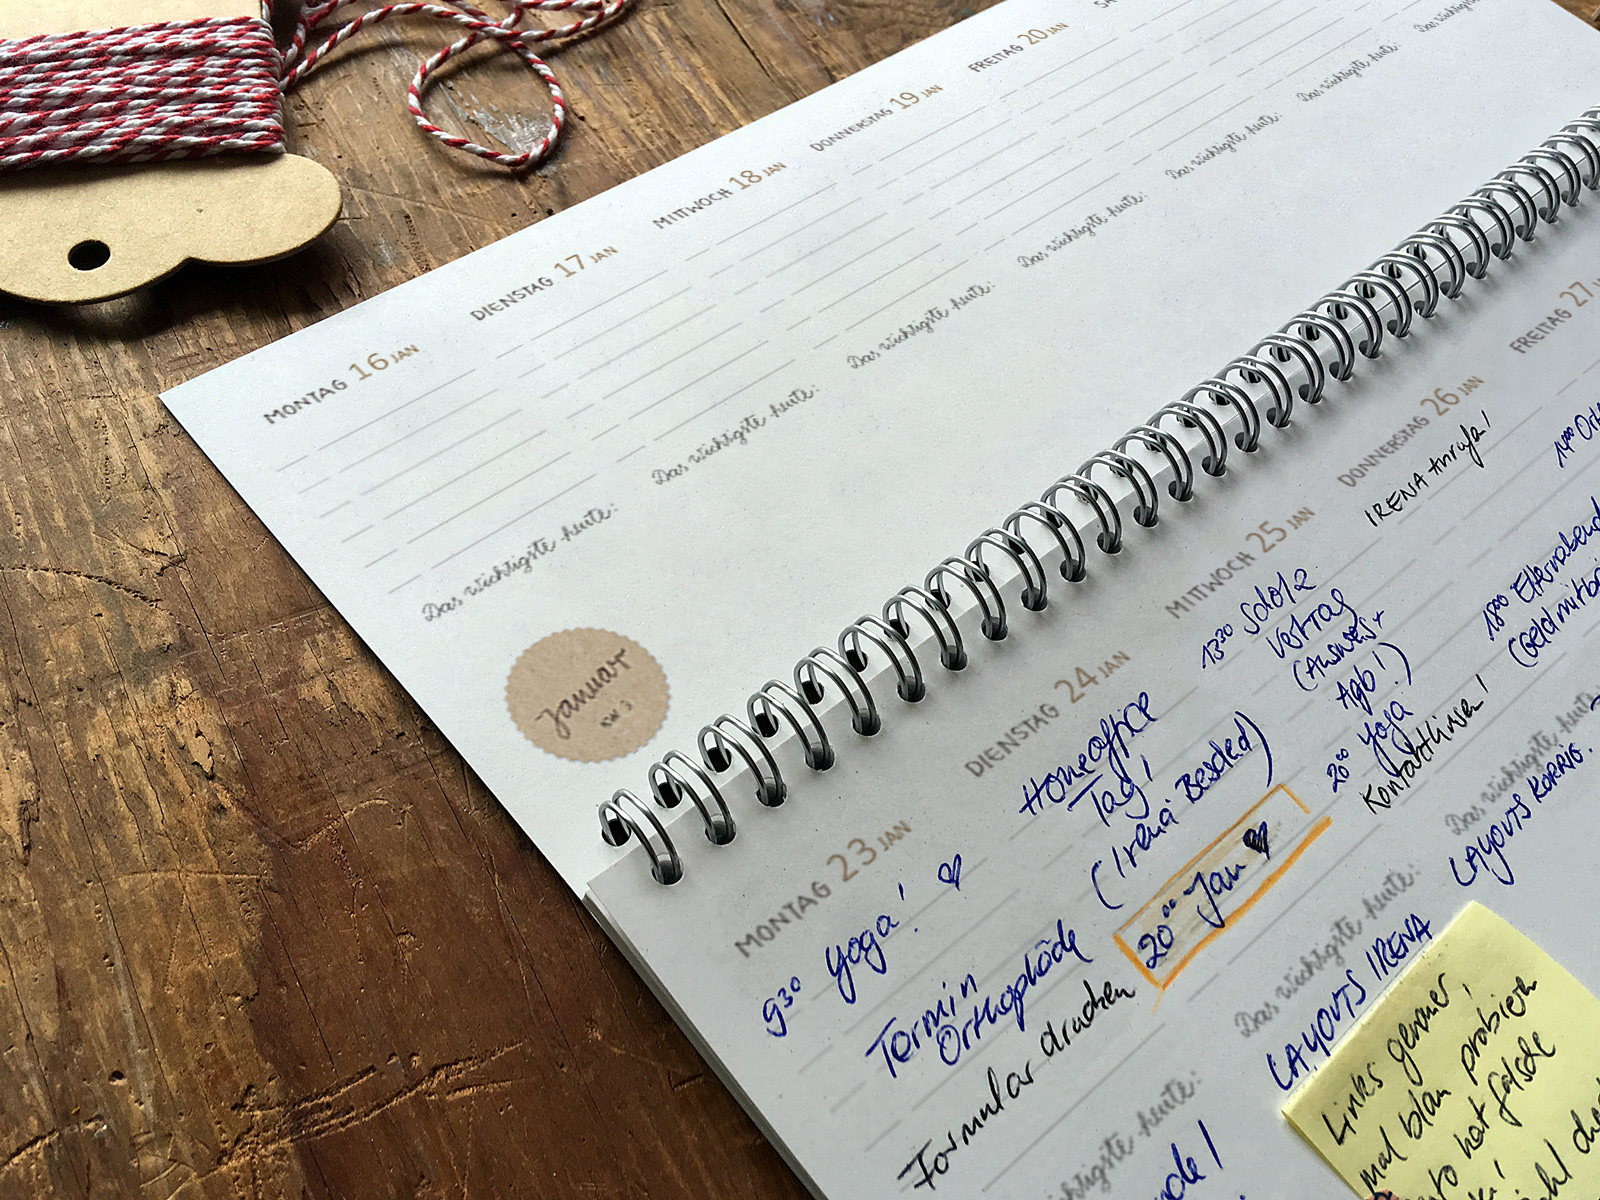 MONTAG 16 JAN
Das wichtigste heute:
DIENSTAG 17 JAN
Das wichtigste heute:
MITTWOCH 18 JAN
Das wichtigste heute:
DONNERSTAG 19 JAN
Das wichtigste heute:
FREITAG 20 JAN
Das wichtigste heute:
SA
Das wichtigste heute:
Das wichtigste
Januar
KW 3
MONTAG 23 JAN
9³⁰ Yoga! ♥
Termin
Orthopäde
Formular drucken
wichtigste heute:
DIENSTAG 24 JAN
Homeoffice
Tag!
(Irena Bescheid)
20⁰⁰ Jan ♥
Das wichtigste heute:
LAYOUTS IRENA
MITTWOCH 25 JAN
13³⁰ Scholz
Vertrag
(Ausweis +
Agb!)
20⁰⁰ Yoga
Kontaktlinsen!
Das wichtigste heute:
LAYOUTS KORRIG.
DONNERSTAG 26 JAN
IRENA Anrufen!
18⁰⁰ Elternabend
(Geld mitbri
FREITAG 27
14⁰⁰ Orth
Links genauer,
mal blau probieren
hat falsche